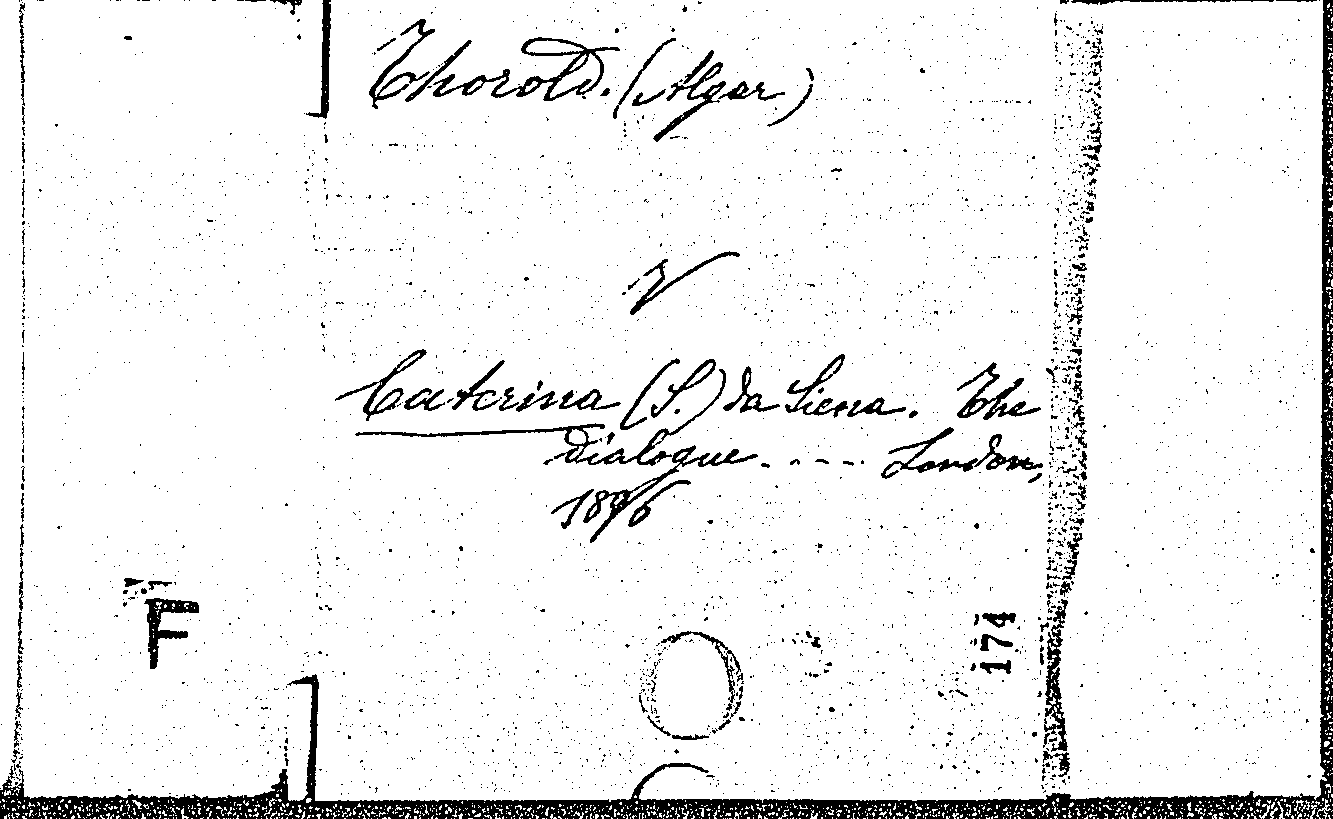 Thorold. (Algar)
V
Caterina (S.) da Siena. The
Dialogue. ---- London,
1896
F
174